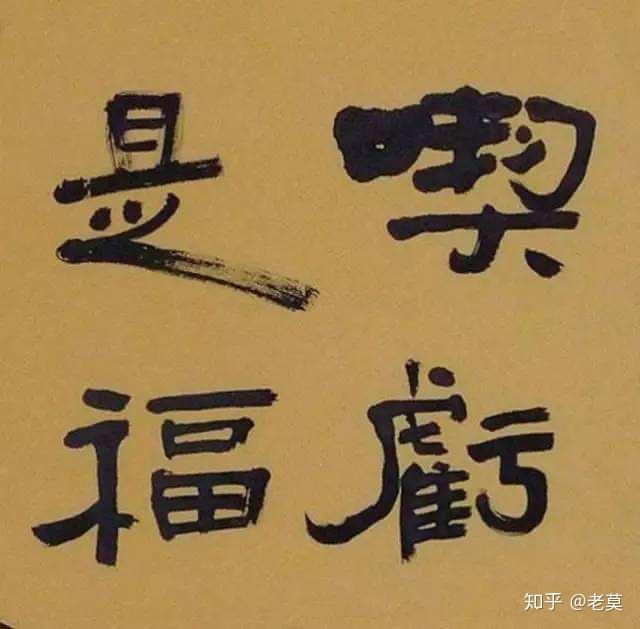 喫虧
是福
知乎 @老莫